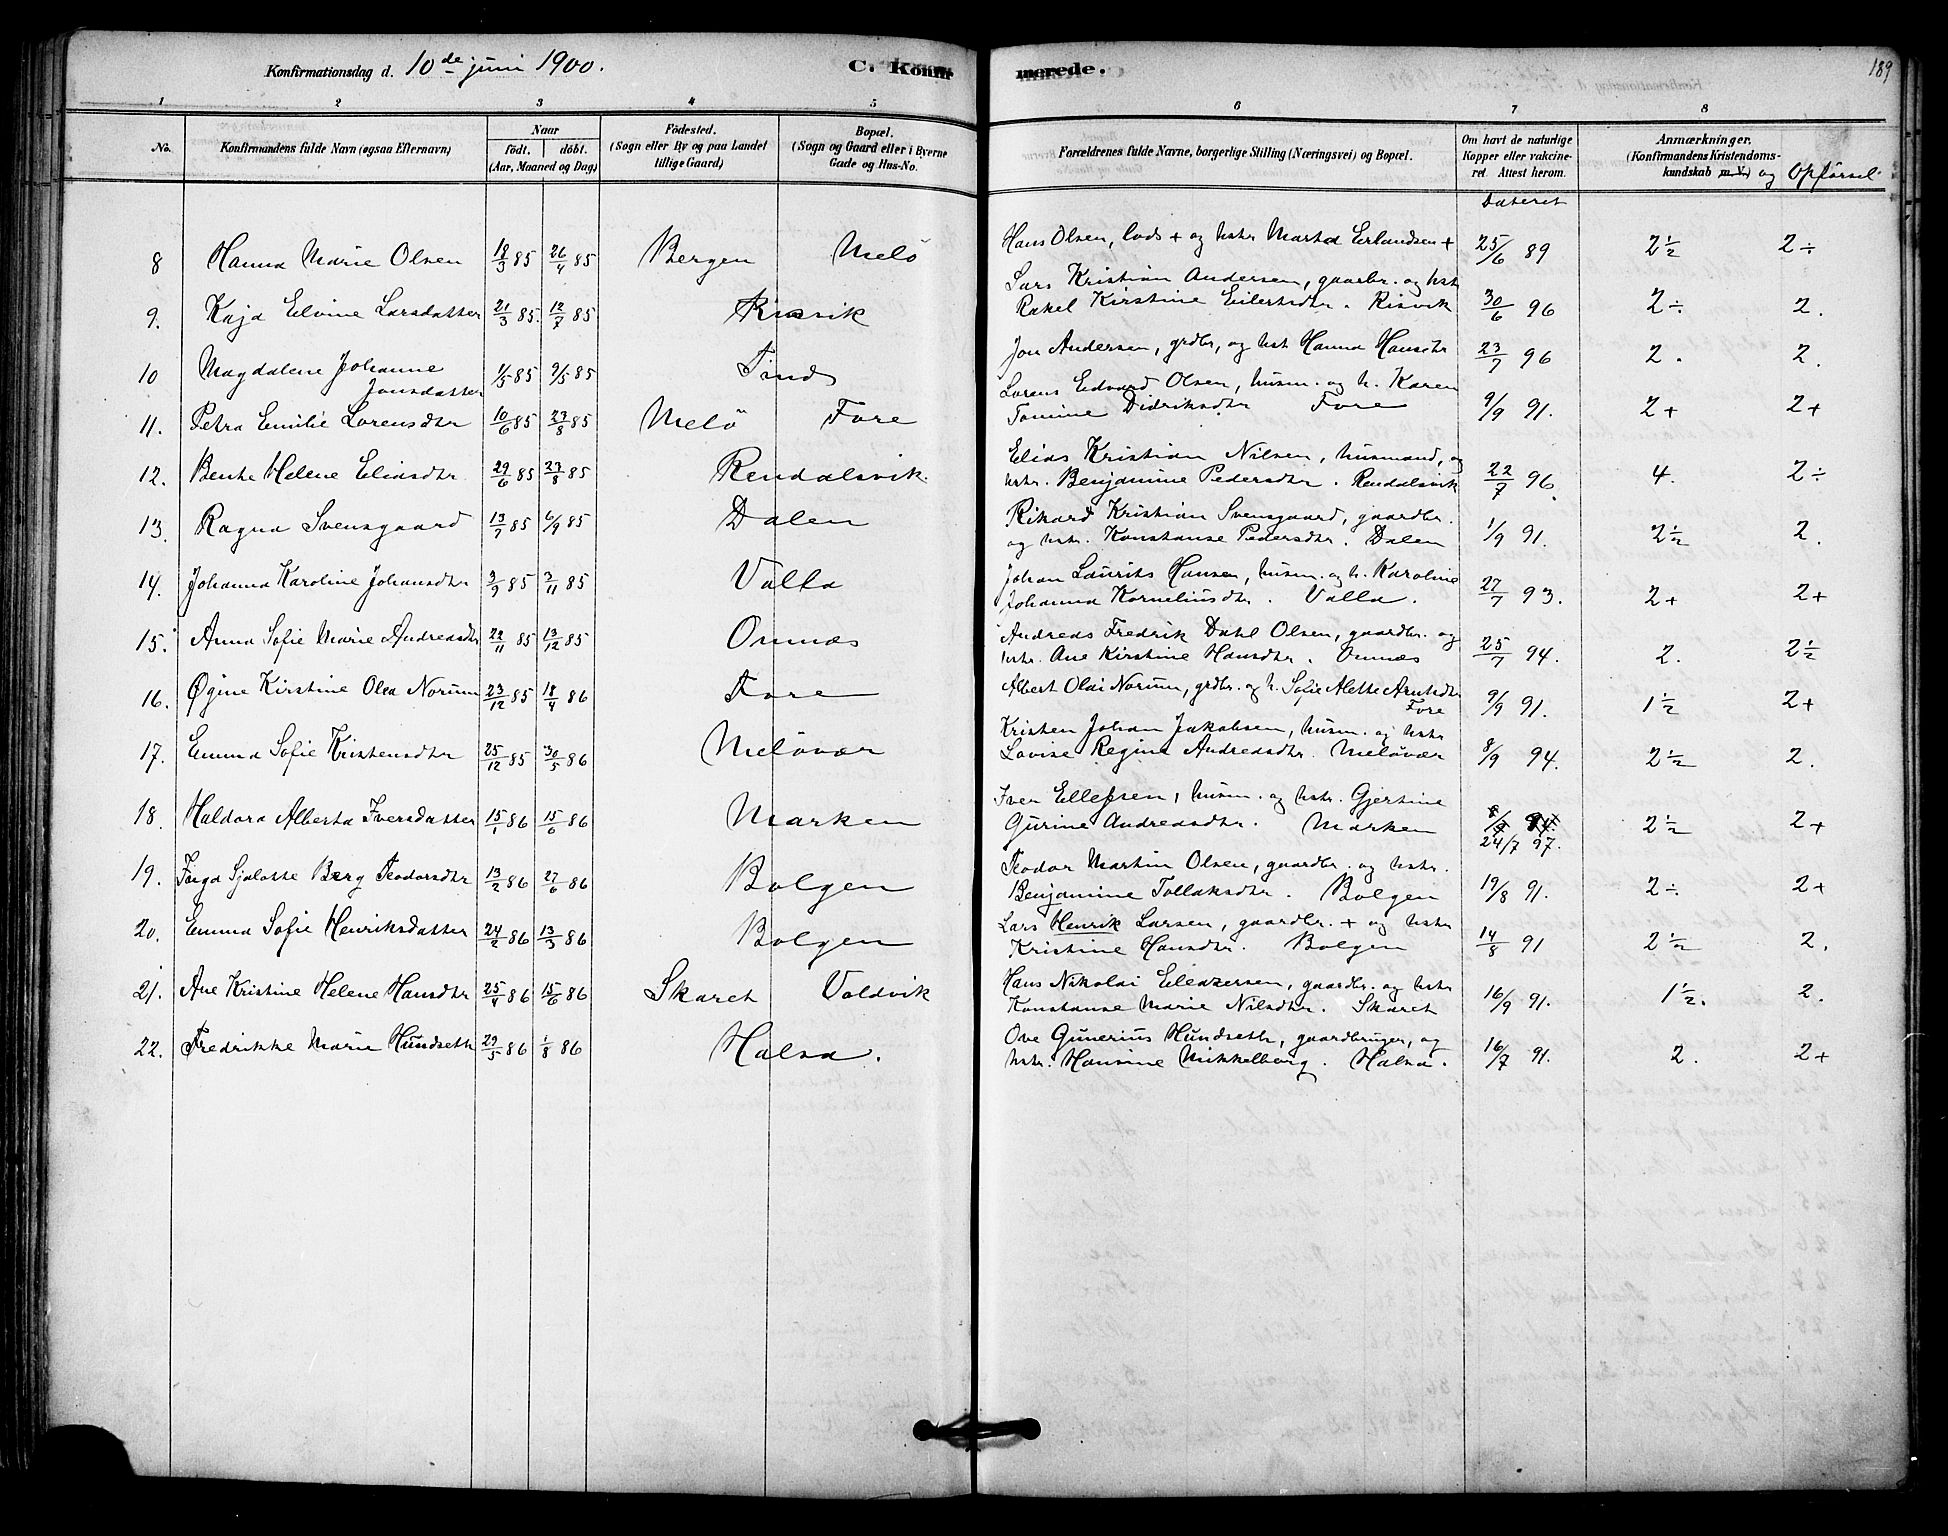 189
Konfirmationsdag d. 10de juni 1900. C. Konfirmerede.
1 2 3 4 5 6 7 8
No. Konfirmandens fulde Navn (ogsaa Efternavn) Naar født. døbt. (Aar, Maaned og Dag) Fødested. (Sogn eller By og paa Landet tillige Gaard) Bopæl. (Sogn og Gaard eller i Byerne Gade og Hus-No. Forældrenes fulde Navne, borgerlige Stilling (Næringsvei) og Bopæl. Om havt de naturlige Kopper eller vakcineret Attest herom. Anmærkninger. (Konfirmandens Kristendomskundskab m. V.) og Opførsel
Dateret
8 Hanna Marie Olsen 18/3 85 26/4 85 Bergen Melö Hans Olsen, lods + og hstr Marta Erlandsen + 25/6 89 2 1/2 2÷
9. Kaja Elvine Larsdatter 21/3 85. 12/7 85 Risvik Lars Kristian Andersen, gaarbr. og hst
Rakel Kirstine Eilertsdtr. Risvik 30/6 96 2÷ 2.
10 Magdalene Johanne
Jonsdatter 1/5 85 9/5 85 Jon Andersen, grdbr, og hst Hanna Hansdtr 23/7 96 2. 2.
11. Petra Emilie Lorensdtr 10/6 85 23/8 85 Melö Fore Lorens Edvard Olsen, husm. og h. Karen
Tomine Didriksdtr Fore 9/9 91. 2+ 2+
12. Bente Helene Eliasdtr 29/6 85 23/8 85 Rendalsvik. Elias Kristian Nilsen, husmand, og
hstr. Benjamine Pedersdtr. Rendalsvik 22/7 96. 4. 2÷
13. Ragna Svensgaard 13/7 85 6/9 85 Dalen Rikard Kristian Svensgaard, gaardbr.
og hstr. Konstanse Pedersdtr. Dalen 1/9 91. 2 1/2 2.
14. Johanna Karoline Johansdtr 3/9 85 3/11 85 Valla Johan Laurits Hansen, husm. og h. Karoline
Johanna Korneliusdtr. Valla. 27/7 93. 2+ 2+
15. Anna Sofie Marie Andreasdtr 22/11 85 13/12 85 Ornnæs Andreas Fredrik Dahl Olsen, gaardbr. og
hstr. Ane Kirstine Hansdtr. Ornnæs 25/7 94. 2. 2 1/2
16. Øgine Kirstine Olea Norum 23/12 85 18/4 86 Fore Albert Olai Norum, grdbr. og h. Sofie Alette Arntsdtr
Fore 9/9 91. 1 1/2 2+
17. Emma Sofie Kristensdtr 25/12 85 30/5 86 Melövær Kristen Johan Jakobsen, husm. og hstr
Lovise Regine Andreasdtr. Melövær 8/9 94. 2 1/2 2.
18. Haldora Alberta Iversdatter 15/1 86 15/6 86 Marken Iver Ellefsen, husm. og hstr. Gjertine
Gurine Andreasdtr. Marken 8/9 94
24/7 97. 2 1/2 2+
19. Inga Sjalotte Berg Teodorsdtr 13/2 86 27/6 86 Bolgen Teodor Martin Olsen, gaardbr. og hstr.
Benjamine Tollaksdtr. Bolgen 19/8 91. 2÷ 2+
20. Emma Sofie Henriksdatter 24/2 86 13/3 86 Bolgen Lars Henrik Larsen, gaardbr. + og hstr
Kristine Hansdtr. Bolgen 14/8 91 2 1/2 2.
21. Ane Kristine Helene Hansdtr 25/4 86 15/6 86 Skaret Valdvik Hans Nikolai Eleazersen, gaardbr. og hstr
Konstanse Marie Nilsdtr. Skaret 16/9 91. 1 1/2. 2.
22. Fredrikke Marie Hundseth 29/5 86 1/8 86 Halsa. Ove Gunerius Hundseth, gaardbruger, og
hstr. Hansine Mikkelborg. Halsa. 16/7 91. 2. 2+